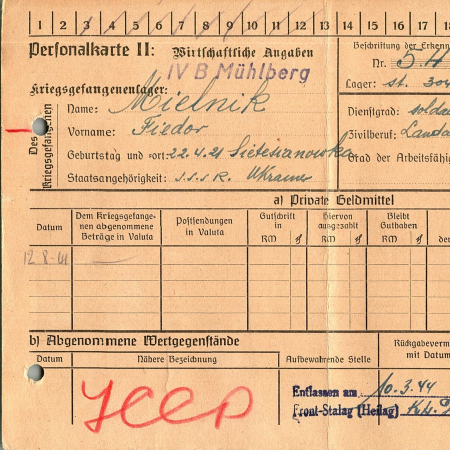 1 2 3 4 5 6 7 8 9 10 11 12 13 14 15 16 17 18
Personalkarte II: Wirtschaftliche Angaben
Beschriftung der Erkenn
IV B Mühlberg
Nr. 54
Kriegsgefangenenlager:
Lager: st. 304
Des Kriegsgefangenen
Name: Mielnik
Dienstgrad: solda
Vorname: Fiedor
Zivilberuf: Landa
Geburtstag und -ort: 22.4.21
Grad der Arbeitsfähig
Staatsangehörigkeit: S.S.S.R. Ukraine
a) Private Geldmittel
Datum
Dem Kriegsgefange-
nen abgenommene
Beträge in Valuta
Postsendungen
in Valuta
Gutschrift
in
RM ₰
Hiervon
ausgezahlt
RM ₰
Bleibt
Guthaben
RM ₰
der
12-8-41
b) Abgenommene Wertgegenstände
Rückgabeverm
mit Datum
Datum
Nähere Bezeichnung
Aufbewahrende Stelle
Entlassen am 10.3.44
Front-Stalag (Heilag)